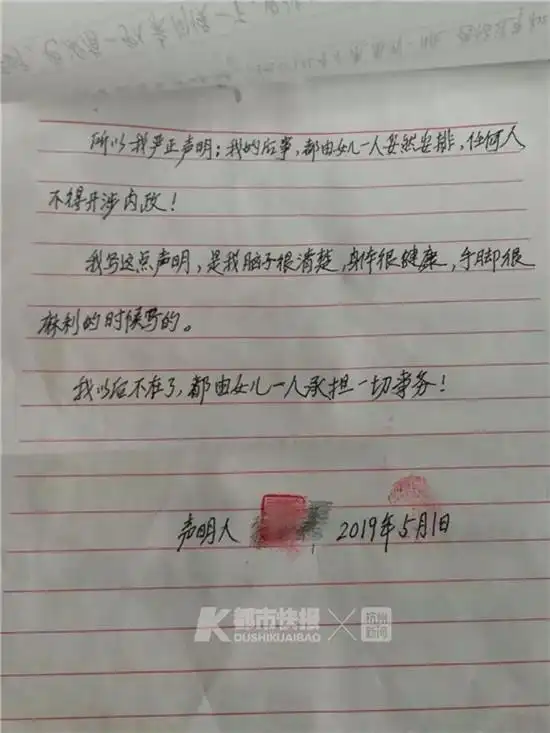 所以我严正声明：我的后事，都由女儿一人妥然安排，任何人
不得开涉内政！
我写这点声明，是我脑子很清楚，身体很健康，手脚很
麻利的时候写的。
我以后不在了，都由女儿一人承担一切事务！
声明人
2019年5月1日
K都市快报
DUSHIKUAIBAO
杭州
新闻